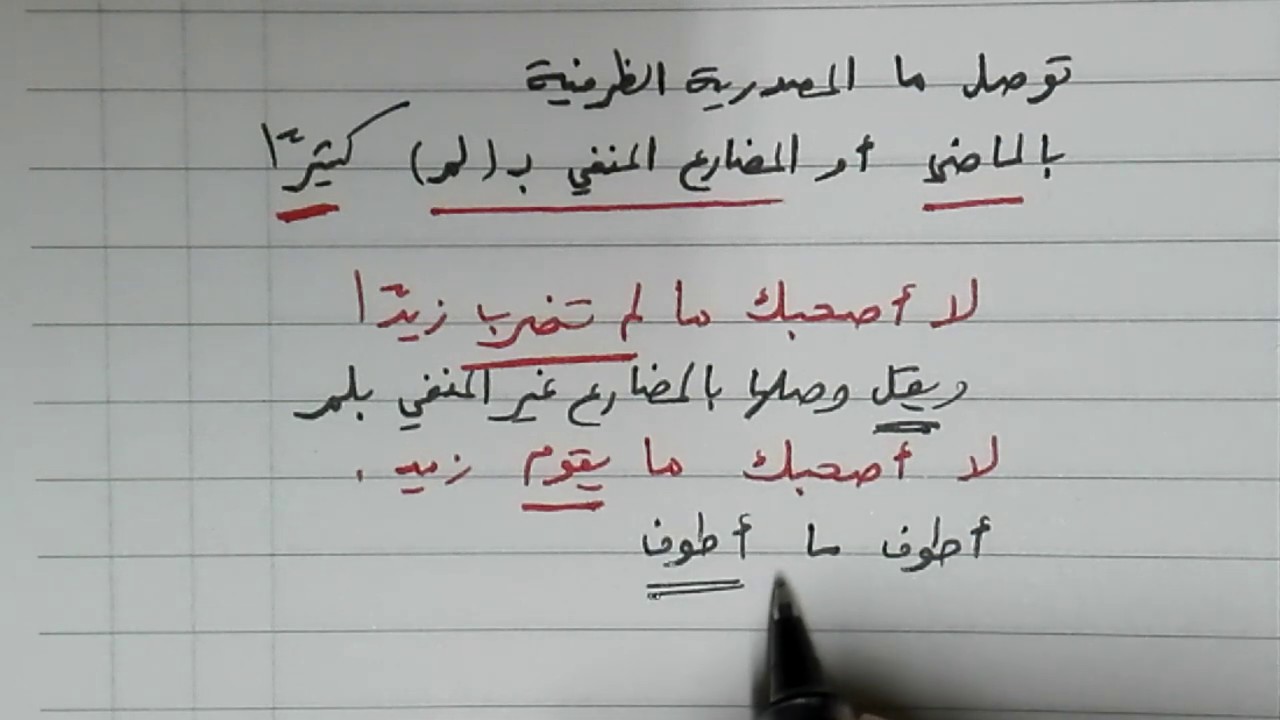 توصل ما المصدرية الظرفية
بالماضي أو المضارع المنفي بـ (لم) كثيرًا
لا أصحبك ما لم تضرب زيدًا
ويقل وصلها بالمضارع غير المنفي بلم
لا أصحبك ما يقوم زيد.
أطوف ما أطوف